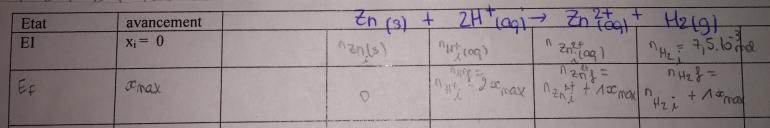 Etat avancement Zn (s) + 2H⁺(aq) → Zn²⁺(aq) + H₂(g)
EI xᵢ = 0 n Zn i (s) n H⁺ i (aq) n Zn²⁺ i (aq) n H₂ i = 7,5.10⁻³ mol
EF xmax 0 n H⁺ f = n H⁺ i - 2xmax n Zn²⁺ f = n Zn²⁺ i + 1xmax n H₂ f = n H₂ i + 1xmax